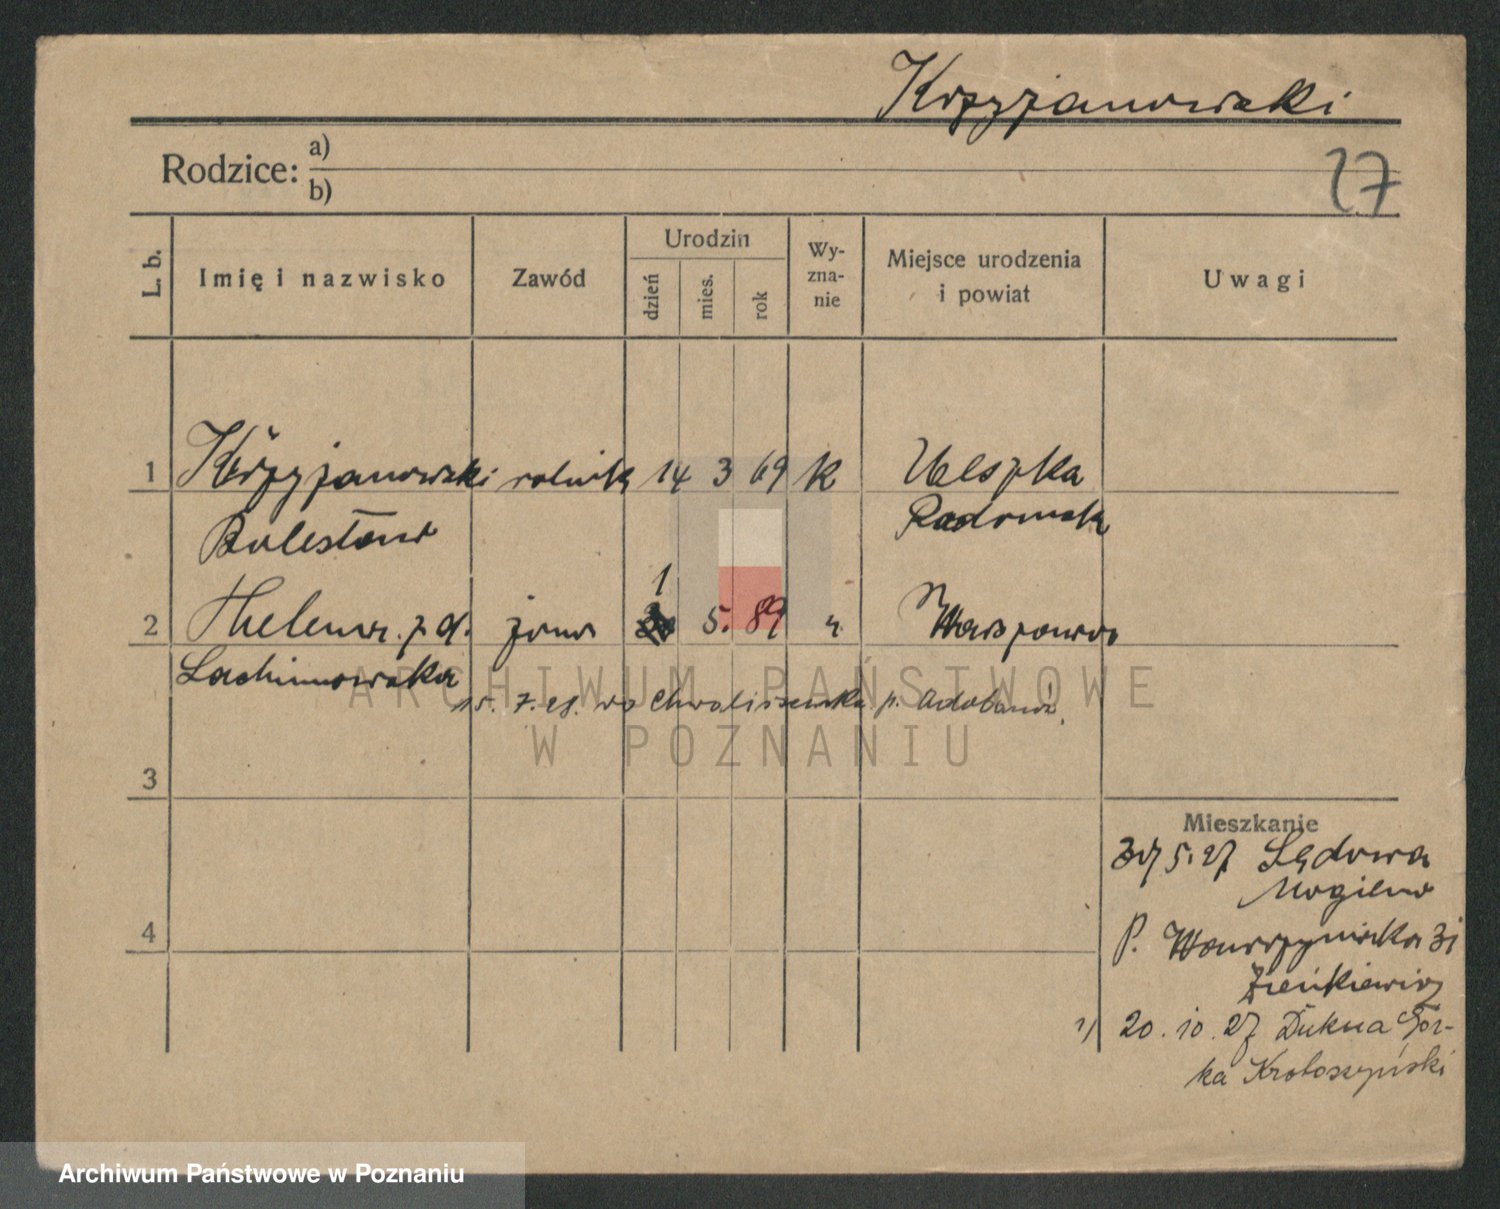 Krzyżanowski
27
Rodzice: a)
b)
L. b.
Imię i nazwisko
Zawód
Urodzin
dzień
mies.
rok
Wy-
zna-
nie
Miejsce urodzenia
i powiat
Uwagi
1 Krzyżanowski rolnik 14 3 69 k
Radomsk
Bolesław
1
2 Helena z d. żona 5. 89 Warszawa
Lachimowska
15. 7. 28. do p.
ARCHIWUM PAŃSTWOWE
W POZNANIU
3
Mieszkanie
30/5.27
Mogilno
4
P. Wawrzyniaka 31
20.10.27 Gór-
ka Krotoszyński
Archiwum Państwowe w Poznaniu